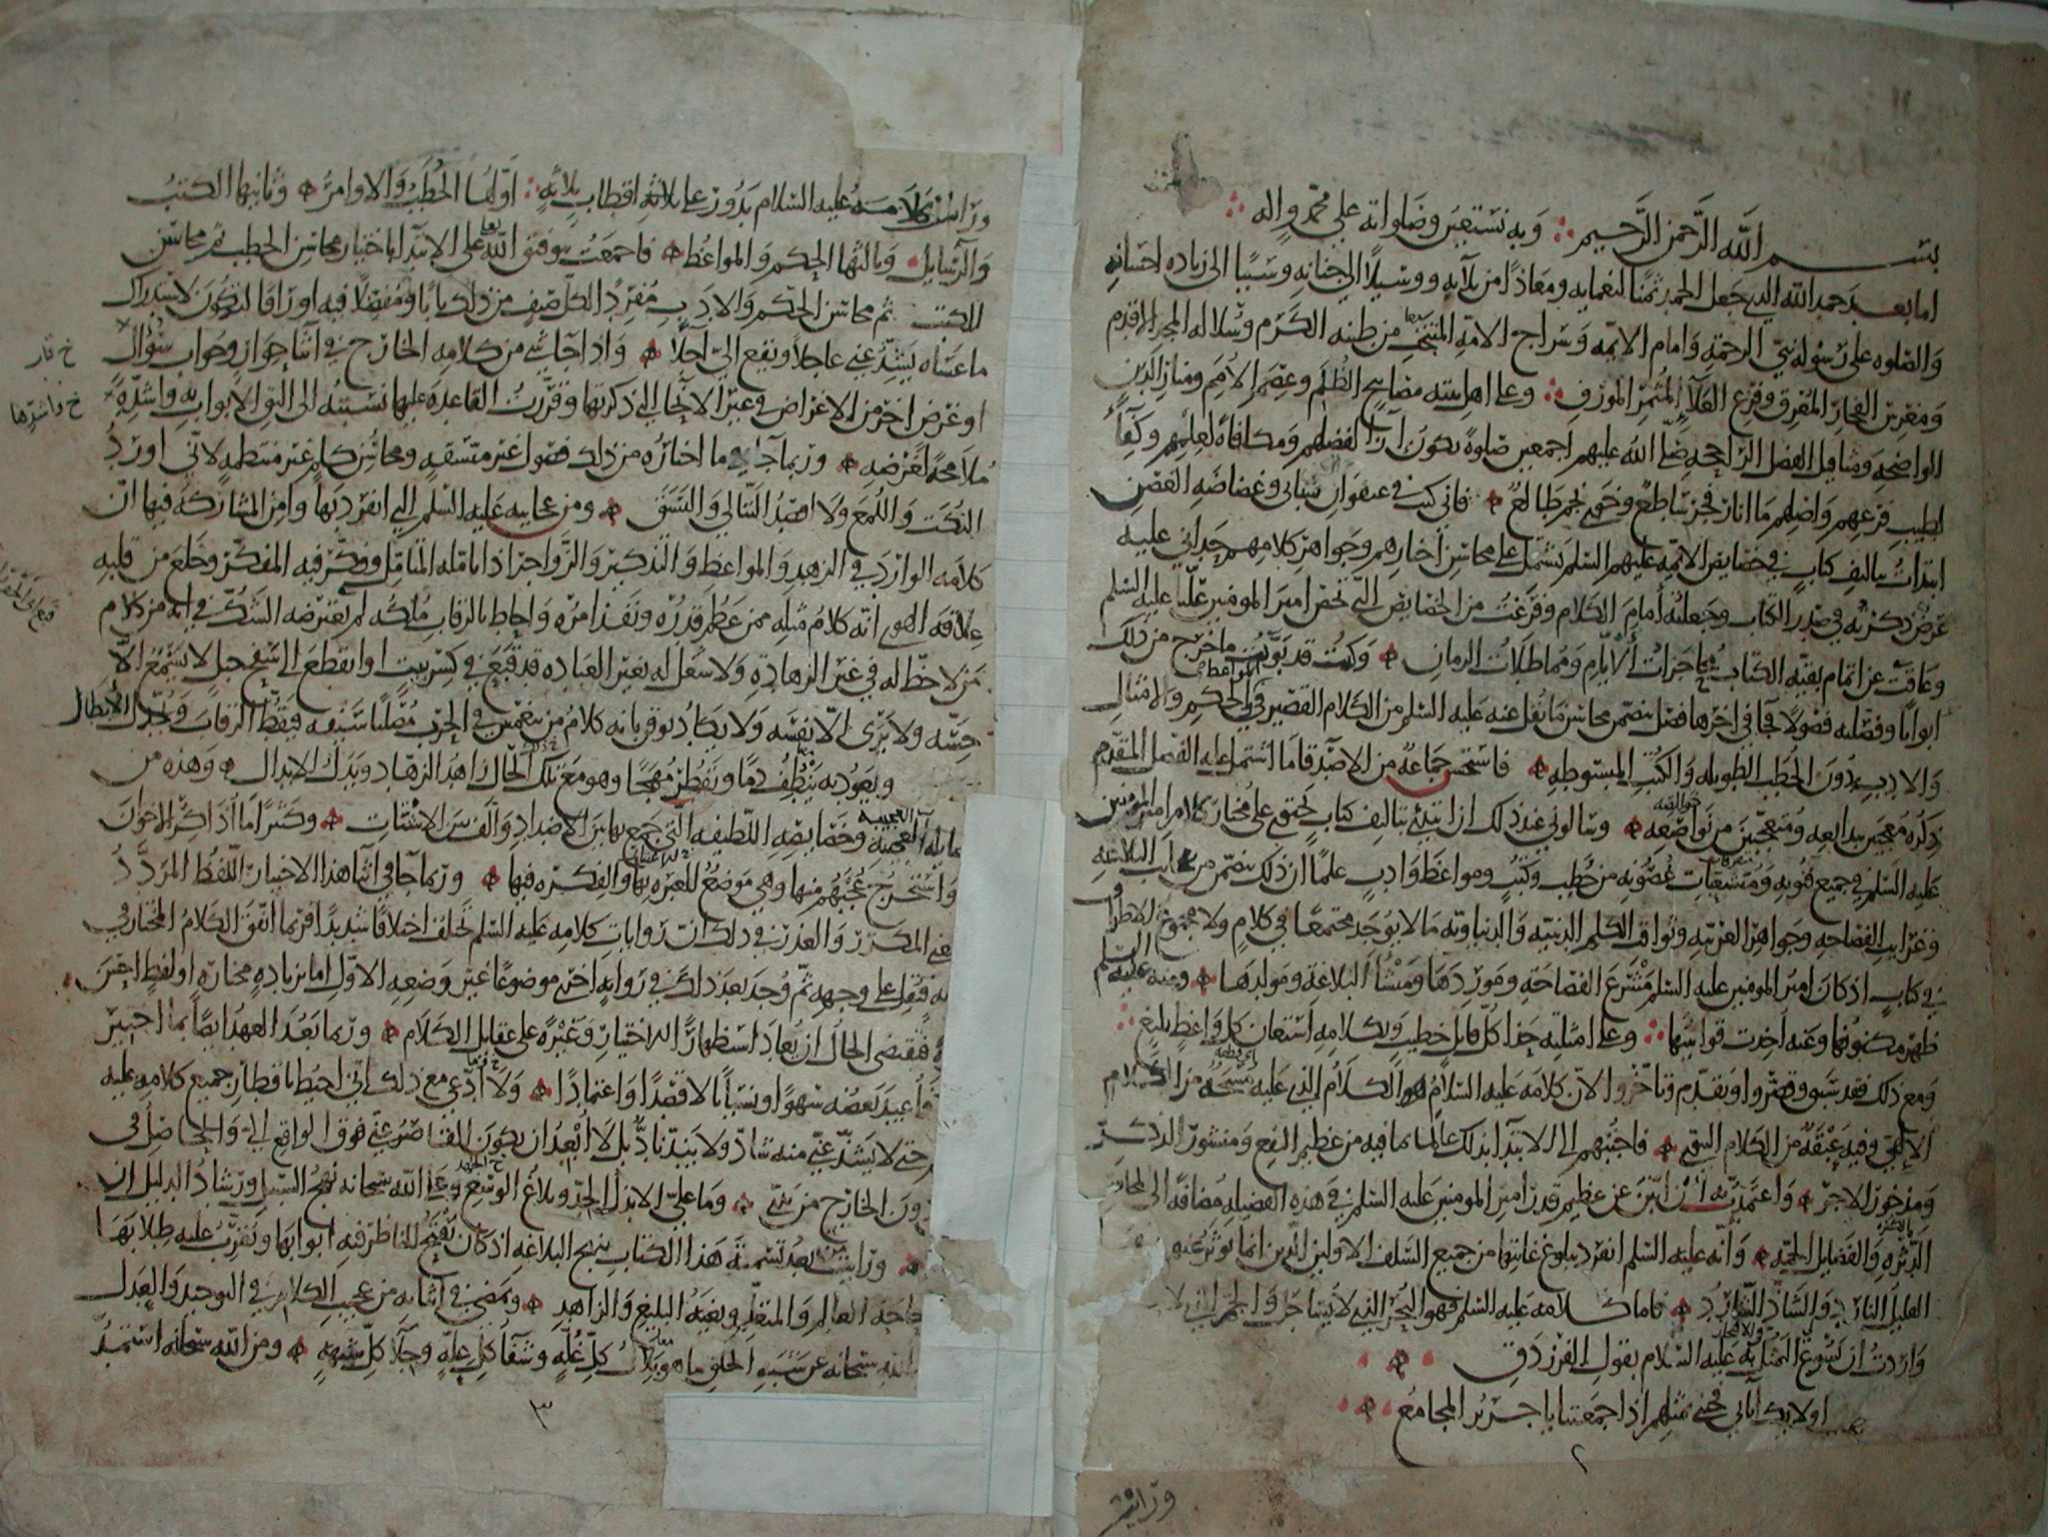 بسم الله الرحمن الرحيم وبه نستعين وصلواته على محمد واله
اما بعد حمد الله الذي جعل الحمد ثمنا لنعمايه ومعاذا من بلآيه ووسيلا الى جنانه وسببا الى زياده احسانه
والصلوه على رسوله نبي الرحمة وامام الايمه وسراج الامه المنتخب من طينه الكرم وسلاله المجد الاقدم
ومغرس الفخار المعرق وفرع العلآ المثمر المورق وعلى اهل بيته مصابيح الظلم وعصم الامم ومنار الدين
الواضحه ومثاقيل الفضل الراجحه صلى الله عليهم اجمعين صلوة تكون ازآ لفضلهم ومكافاة لعملهم وكفآ
لطيب فرعهم واصلهم ما انار فجر ساطع وخوى نجم طالع فاني كنت في عنفوان شبابي وغضاضه الغصن
ابتدات بتاليف كتاب في خصايص الايمه عليهم السلم يشتمل على محاسن اخبارهم وجواهر كلامهم حداني عليه
غرض ذكرته في صدر الكتاب وجعلته امام الكلام وفرغت من الخصايص التي تخص امير المومنين عليا عليه السلم
وعاقت عن اتمام بقيه الكتاب محاجزات الايام ومماطلات الزمان وكنت قد بوبت ما خرج من ذلك
ابوابا وفصلته فصولا فجا في اخرها فصل يتضمن محاسن ما نقل عنه عليه السلم من الكلام القصير في المواعظ والحكم والامثال
والاداب دون الخطب الطويله والكتب المبسوطه فاستحسن جماعة من الاصدقا ما اشتمل عليه الفصل المقدم
ذكره معجبين ببدايعه ومتعجبين من نواصعه وسالوني عند ذلك ان ابتدئ بتاليف كتاب يحتوي على مختار كلام امير المومنين
عليه السلم في جميع فنونه ومتشعبات غصونه من خطب وكتب ومواعظ وادب علما ان ذلك يتضمن من عجايب البلاغه
وغرايب الفصاحه وجواهر العربيه وثواقب الكلم الدينيه والدنياويه ما لا يوجد مجتمعا في كلام ولا مجموع الاطراف
في كتاب اذ كان امير المومنين عليه السلم مشرع الفصاحه وموردها ومنشأ البلاغة ومولدها ومنه عليه السلم
ظهر مكنونها وعنه اخذت قوانينها وعلى امثلته حذا كل قايل خطيب وبكلامه استعان كل واعظ بليغ
ومع ذلك فقد سبق وقصروا وتقدم وتاخروا لان كلامه عليه السلام الكلام الذي عليه مسحة من الكلام
الالهي وفيه عبقة من الكلام النبوي فاجبتهم الى الابتدا بذلك عالما بما فيه من عظيم النفع ومنشور الذكر
ومذخور الاجر واعتمدت به ان ابين عن عظيم قدر امير المومنين عليه السلم في هذه الفضيله مضافة الى المحاسن
الدثره والفضايل الجمه وانه عليه السلم انفرد ببلوغ غايتها من جميع السلف الاولين الذين انما يوثر عنهم
القليل النادر والشاذ الشارد فاما كلامه عليه السلم فهو البحر الذي لا يساجل والجم الذي لا
واردت ان يسوغ لي التمثل به عليه السلام بقول الفرزدق
اولايك آبائي فجئني بمثلهم اذا جمعتنا يا جرير المجامع
٢
ورايت
ورايت كلامه عليه السلام يدور على ثلاثة اقطاب اولها الخطب والاوامر وثانيها الكتب
والرسايل وثالثها الحكم والمواعظ فاجمعت بتوفيق الله تعالى على الابتدا باختيار محاسن الخطب ثم محاسن
الكتب ثم محاسن الحكم والادب مفردا لكل صنف من ذلك بابا ومفصلا فيه اوراقا لتكون لاستدراك
ما عساه يشذ عني عاجلا ويقع الي آجلا واذا جآ شي من كلامه الخارج في اثنا حوار وجواب سؤال
او غرض اخر من الاغراض في غير الانحا التي ذكرتها وقررت القاعده عليها نسبته الى اليق الابواب به واشده
ملامحة لغرضه وربما جآ فيما اختاره من ذلك فصول غير متسقه ومحاسن كلم غير منتظمه لاني اورد
النكت واللمع ولا اقصد التتالي والنسق ومن عجايبه عليه السلم التي انفرد بها وامن المشاركه فيها ان
كلامه الوارد في الزهد والمواعظ والتذكير والزواجر اذا تامله المتامل وفكر فيه المفكر وخلع من قلبه
انه كلام مثله ممن عظم قدره ونفذ امره واحاط بالرقاب ملكه لم يعترضه الشك في انه من كلام
من لا حظ له في غير الزهاده ولا شغل له بغير العباده قد قبع في كسر بيت او انقطع الى سفح جبل لا يسمع الا
حسه ولا يرى الا نفسه ولا يكاد يوقن بانه كلام من ينغمس في الحرب مصلتا سيفه فيقط الرقاب ويجدل الابطال
ويعود به ينطف دما ويقطر مهجا وهو مع تلك الحال زاهد الزهاد وبدل الابدال وهذه من
العجيبه وخصايصه اللطيفه التي جمع بها بين الاضداد والف بين الاشتات وكثيرا ما اذاكر الاخوان
واستخرج عجبهم منها وهي موضع للعبره بها والفكره فيها وربما جآ في اثنا هذا الاختيار اللفظ المردد
المكرر والعذر في ذلك ان روايات كلامه عليه السلم تختلف اختلافا شديدا فربما اتفق الكلام المختار في
فنقل على وجهه ثم وجد بعد ذلك في روايه اخرى موضوعا غير وضعه الاول اما بزيادة مختاره او لفظ احسن
فتقتضي الحال ان يعاد استظهارا للاختيار وغيره على عقايل الكلام وربما بعد العهد ايضا بما اختير
فاعيد بعضه سهوا او نسيانا لا قصدا واعتمادا ولا ادعي مع ذلك اني احيط باقطار جميع كلامه عليه
حتى لا يشذ عني منه شاذ ولا يند ناد بل لا ابعد ان يكون القاصر عني فوق الواقع الي والحاصل في
دون الخارج من يدي وما علي الا بذل الجهد وبلاغ الوسع وعلى الله سبحانه نهج السبيل ورشاد الدليل ان
ورايت بعد تسمية هذا الكتاب بنهج البلاغه اذ كان يفتح للناظر فيه ابوابها ويقرب عليه طلابها
حاجه العالم والمتعلم وبغية البليغ والزاهد ويمضي في اثنايه من عجيب الكلام في التوحيد والعدل
الله سبحانه عن شبه الخلق ما هو بلال كل غله وشفآ كل عله وجلآ كل شبهه ومن الله سبحانه استمد
٣